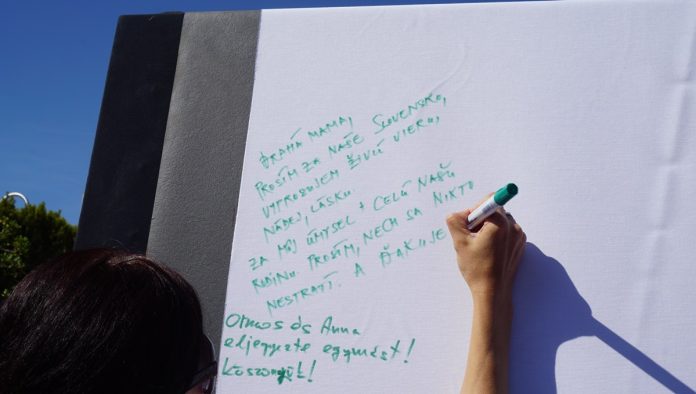 DRAHÁ MAMA,
PROSÍM ZA NAŠE SLOVENSKO,
VYPROSUJEM ŽIVÚ VIERU,
NÁDEJ, LÁSKU.
ZA MÔJ ÚMYSEL + CELÚ NAŠU
RODINU. PROSÍM, NECH SA NIKTO
NESTRATÍ. A ĎAKUJE
Otmos és Anna
eljegyezte egymást!
köszönjük!